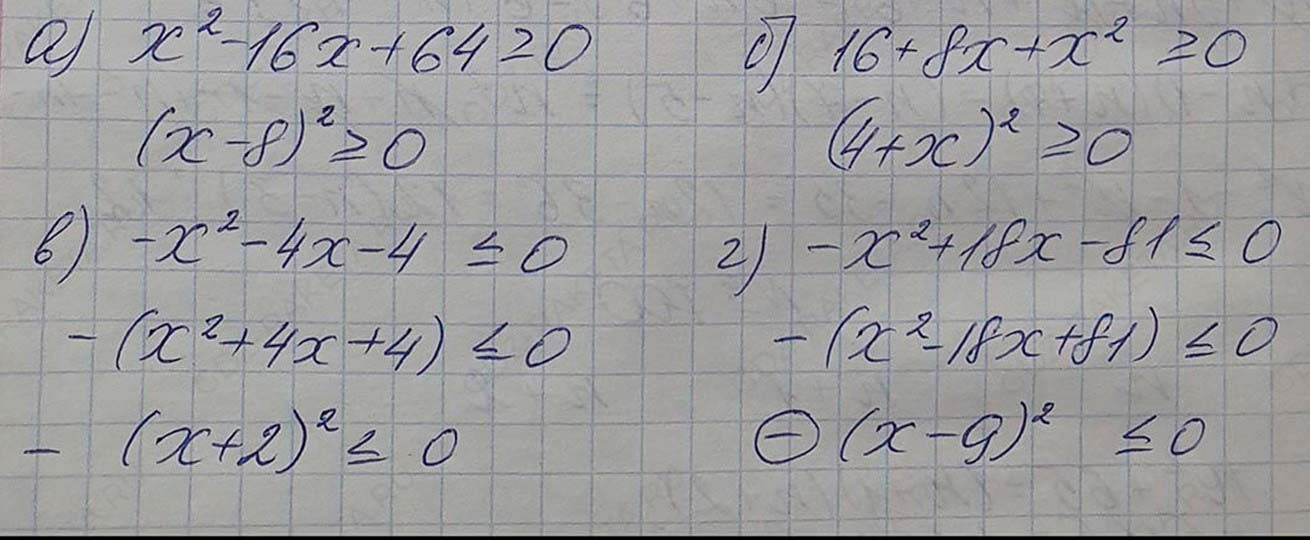 а) x²-16x+64≥0
(x-8)²≥0
б) 16+8x+x² ≥0
(4+x)² ≥0
в) -x²-4x-4 ≤0
-(x²+4x+4) ≤0
- (x+2)² ≤ 0
г) -x²+18x-81≤0
-(x²-18x+81) ≤0
⊖(x-9)² ≤0